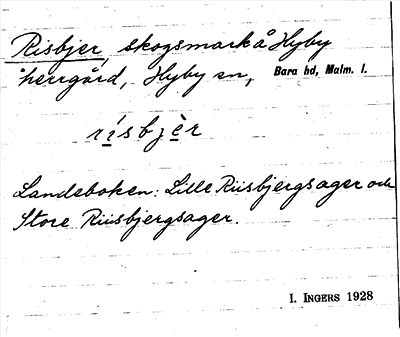 Risbjer, skogsmark å Hyby
herrgård, Hyby sn, Bara hd, Malm. l.
rísbjèr
Landsboken: Lille Riisbjergsager och
Store Riisbjergsager.
I. INGERS 1928